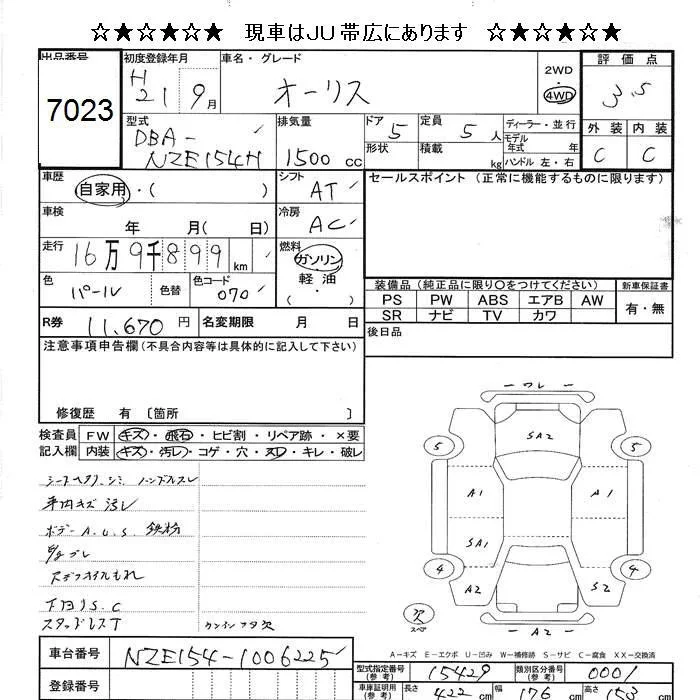 ☆★☆★☆★ 現車はJU帯広にあります ☆★☆★☆★
出品番号
7023
初度登録年月
H 21 9月
車名・グレード
オーリス
2WD
4WD
評価点
3.5
外装 内装
C C
型式
DBA-
NZE154H
排気量
1500 cc
ドア 5
形状
定員 5人
積載 kg
ディーラー・並行
モデル年式 年
ハンドル 左・右
車歴
自家用・( )
シフト
AT
セールスポイント(正常に機能するものに限ります)
車検
年 月( 日)
冷房
AC
走行
16万9千899km
燃料
ガソリン
軽油
・( )
色
パール
色替
色コード
070
装備品(純正品に限り○をつけてください)
新車保証書
PS PW ABS エアB AW
SR ナビ TV カワ
有・無
R券 11,670円
名変期限 月 日
後日品
注意事項申告欄(不具合内容等は具体的に記入して下さい)
修復歴 有 〔箇所 〕
検査員 FW キズ・飛石・ヒビ割・リペア跡・×要
記入欄 内装 キズ・汚レ・コゲ・穴・スレ・キレ・破レ
ハンドルスレ
キズ 汚レ
ボデー A.U.S 鉄粉
下回りS.C
スタッドレスT
ワレ
SA2
5 5
A1 A1
SA1
4 4
A2 S2
欠
スペア
A2
A-キズ E-エクボ U-凹み W-補修跡 S-サビ C-腐食 XX-交換済
車台番号 NZE154-1006225
登録番号
型式指定番号(参考) 15429
類別区分番号(参考) 0001
車庫証明用(参考) 長さ 422 cm 幅 176 cm 高さ 153 cm